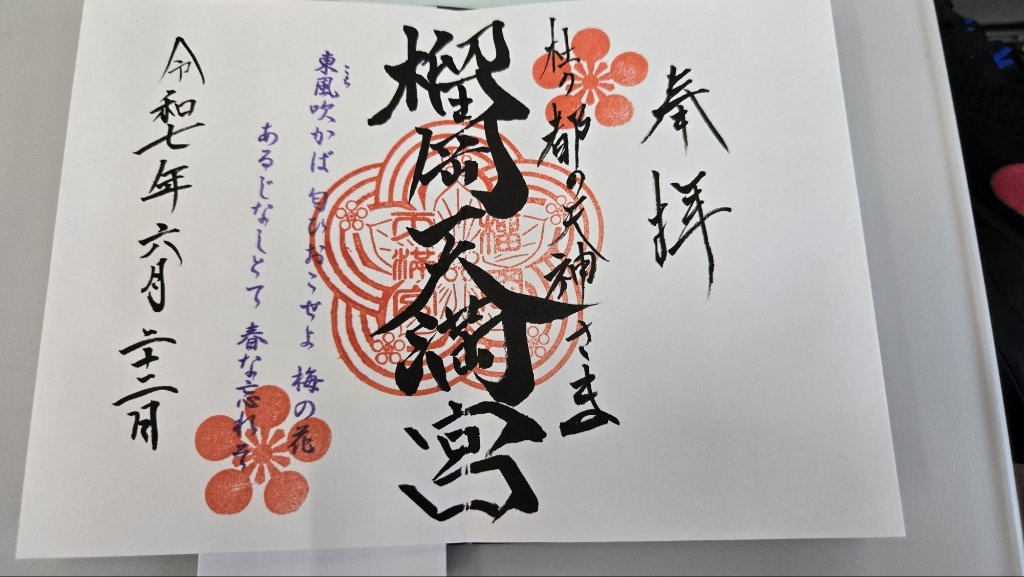 奉拝
杜の都の天神さま
榴岡天満宮
榴岡
天満宮
こち
東風吹かば 匂ひおこせよ 梅の花
あるじなしとて 春な忘れそ
令和七年 六月 二十二日